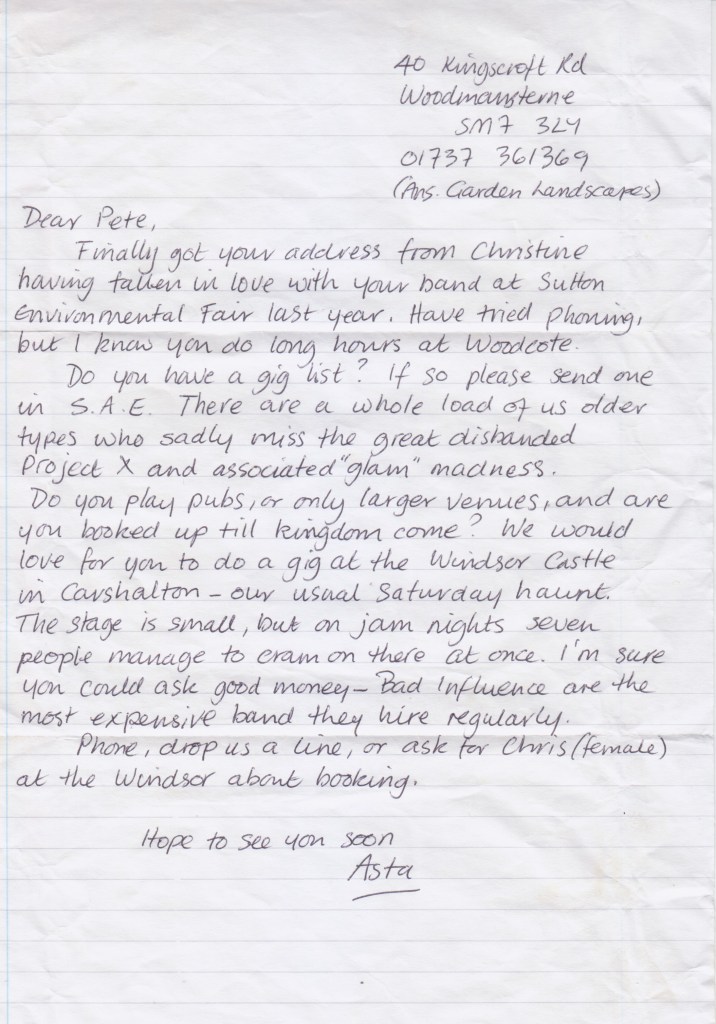 40 Kingscroft Rd
Woodmansterne
SM7 3LY
01737 361369
(Ans. Garden Landscapes)
Dear Pete,
Finally got your address from Christine
having fallen in love with your band at Sutton
Environmental Fair last year. Have tried phoning,
but I know you do long hours at Woodcote.
Do you have a gig list? If so please send one
in S.A.E. There are a whole load of us older
types who sadly miss the great disbanded
Project X and associated "glam" madness.
Do you play pubs, or only larger venues, and are
you booked up till kingdom come? We would
love for you to do a gig at the Windsor Castle
in Carshalton - our usual Saturday haunt.
The stage is small, but on jam nights seven
people manage to cram on there at once. I'm sure
you could ask good money - Bad Influence are the
most expensive band they hire regularly.
Phone, drop us a line, or ask for Chris (female)
at the Windsor about booking.
Hope to see you soon
Asta